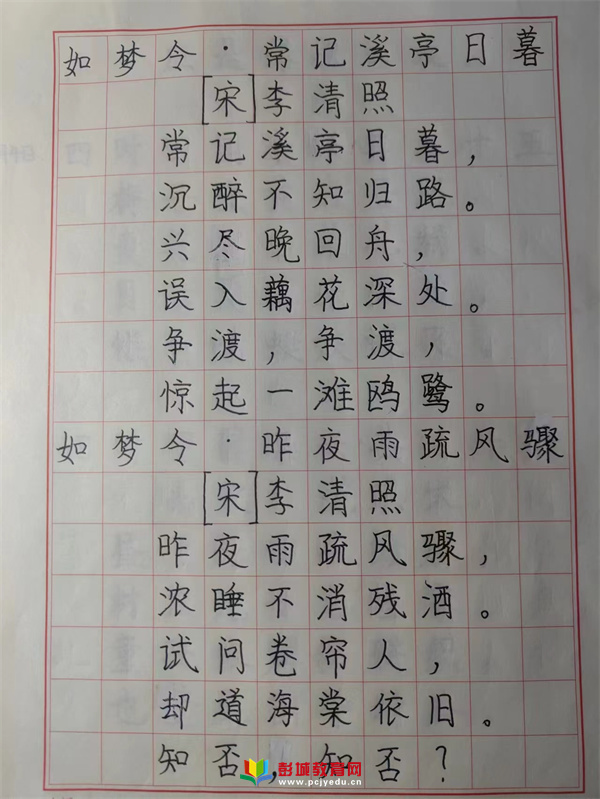 如梦令·常记溪亭日暮
[宋]李清照
常记溪亭日暮，
沉醉不知归路。
兴尽晚回舟，
误入藕花深处。
争渡，争渡，
惊起一滩鸥鹭。
如梦令·昨夜雨疏风骤
[宋]李清照
昨夜雨疏风骤，
浓睡不消残酒。
试问卷帘人，
却道海棠依旧。
知否，知否？
彭城教育网
www.pcjyedu.cn